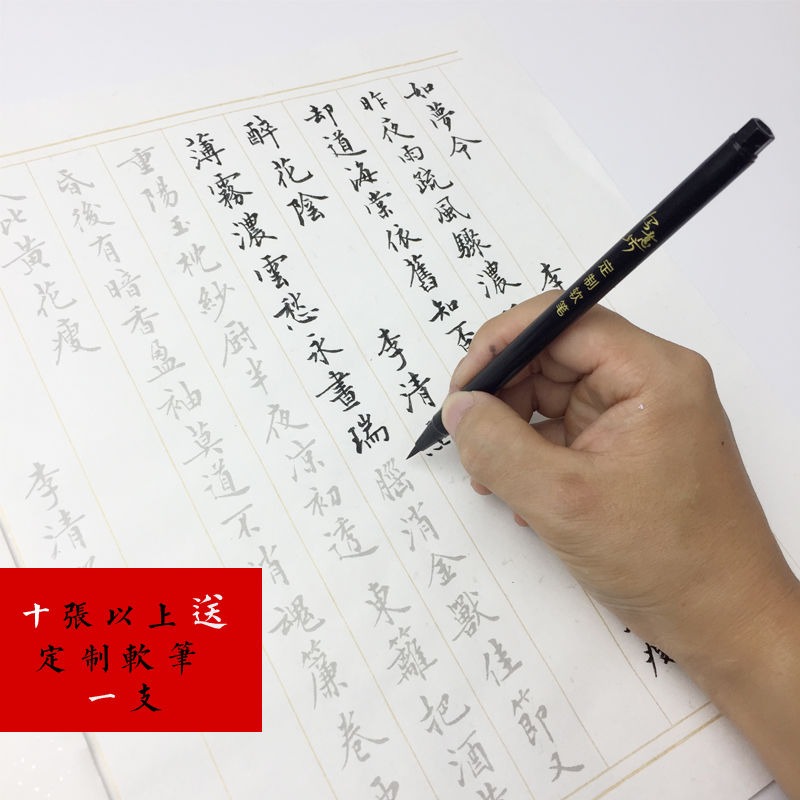 如夢令 李
昨夜雨疏風驟濃
却道海棠依舊知否
瘦
醉花陰 李清
薄霧濃雲愁永晝瑞腦消金獸佳節又
重陽玉枕紗厨半夜凉初透 東籬把酒
昏後有暗香盈袖莫道不消魂簾卷
人比黃花瘦 李清
定制软笔
十張以上送
定制軟筆
一支